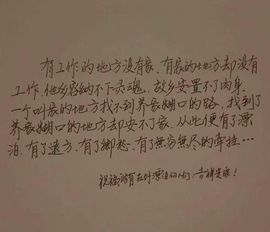 有工作的地方没有家，有家的地方却没有
工作，他乡容纳不下灵魂，故乡安置不了肉身，
一个叫家的地方找不到养家糊口的路，找到了
养家糊口的地方却安不了家，从此便有了漂
泊，有了远方，有了乡愁，有了无穷无尽的牵挂…
祝福所有在外漂泊的人们，吉祥安康！